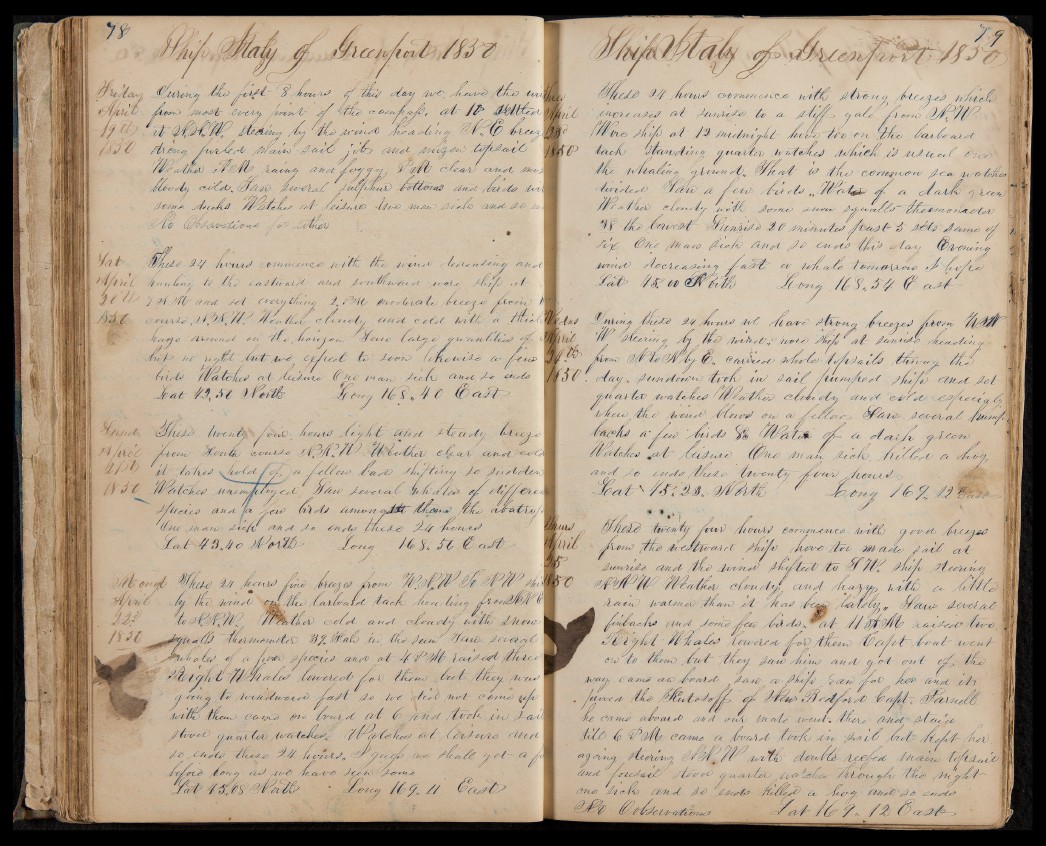 78
Ship Italy of Greenport 1850
Friday
April
19th
1850
During the first 8 hours of this day we have the wind
from most every point of the compass, at 10 settled
at N.N.W. steering by the wind heading N.E breeze
strong furled main sail jib and mizen topsail
Weather A.M. rainy and foggy P.M clear and
cloudy cold. Saw several sulphur bottoms and birds
some ducks Watches at leisure One man sick and so
No Observations for either
Sat
April
20th
1850
These 24 hours commence with the wind decreasing and
hauling to the eastward and southward wore ship at
A.M and set everything 2 P.M moderate breeze from
course N.N.W. Weather cloudy and cold with a thick
haze around on the horizon Saw large quantities of
but no right but we expect to soon likewise a few
birds Watches at leisure One man sick and so ends
Lat 43,50 North Long 168.40 East
April
21st
1850
These twenty four hours light and steady breeze
from South course N.N.W Weather clear and cold
it takes hold of a fellow base shifting so sudden
Watches unemployed Saw several whales of different
species and a few birds among them the
One man sick and so ends these 24 hours
Lat 43.40 North Long 168.56 East
Mond
April
22d
1850
These 24 hours fine breezes from W.N.W to N.W
by the wind on the larboard tack heading from
to N.N.W. Weather cold and cloudy with snow
squalls thermometer 39. in the sun Saw several
whales of a poor species and at 4 P.M raised three
Right Whales lowered for them but they were
going to windward fast so we did not come up
with them came on board at 6 and took in sail
stood quarter watches. Watches at leisure and
so ends these 24 hours. I guess we shall get a
before long as we have seen some
Lat 45,08 North Long 169.11 East
79
Ship Italy of Greenport 1850
April
23d
1850
These 24 hours commence with strong breezes which
increases at sunrise to a stiff gale from N.W
Wore ship at 12 midnight hove too on the larboard
tack Standing quarter watches which is usual on
the whaling ground. That is the common sea watches
divided Saw a few birds. Water of a dark green
Weather cloudy with some snow squalls thermometer
38 the lowest Sunrise 20 minutes past 5 sets same of
six One man sick and so ends this day Evening
wind decreasing fast a whale tomorrow I hope
Lat 45.00 North Long 168.54 East
Wedns
April
24th
1850
During these 24 hours we have strong breezes from
W steering by the wind. wore ship at sunrise heading
from N to N by E. carried whole topsails through the
day. sundown took in sail pumped ship and set
quarter watches Weather cloudy and cold especially
when the wind blows on a fellow Saw several hump
backs a few birds &c Water of a dark green
Watches at leisure One man sick killed a hog
and so ends these twenty four hours
Lat 45.28. North Long 169.12 East
Thurs
April
25
1850
These twenty four hours commence with good breezes
from the westward ship hove too made sail at
sunrise and the wind shifted to S.W. ship steering
N.N.W Weather cloudy and hazy with a little
rain warmer than it has been lately. Saw several
finbacks and some few birds. at 11 A.M raised two
Right Whales lowered for them Capt boat went
on to them but they saw him and got out of the
way came on board, saw a ship ran for her and it
proved the Kutusoff of New Bedford Capt.
he came aboard and our mate went there and staid
till 6 P.M came a board took in sail but kept her
agoing steering N.N.W with double reefed main topsail
and foresail stood quarter watches through the night
one sick and so ends killed a hog and so ends
No Observations Lat 169.12 East